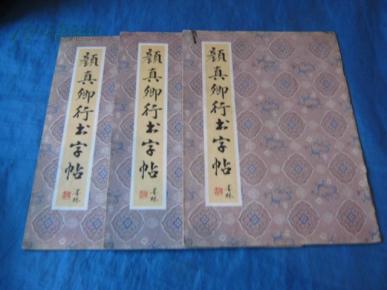 顏真卿行书字帖
顏真卿行书字帖
顏真卿行书字帖